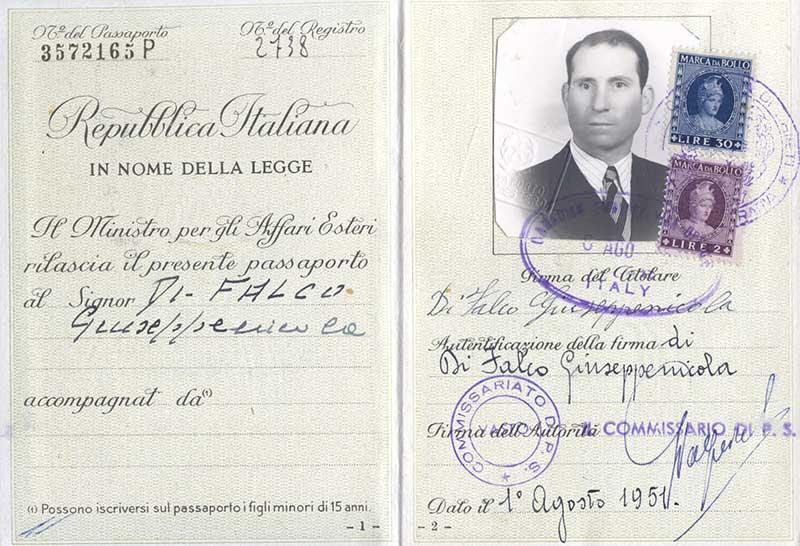 N.º del Passaporto
3572165 P
N.º del Registro
2738
Repubblica Italiana
IN NOME DELLA LEGGE
Il Ministro per gli Affari Esteri
rilascia il presente passaporto
al Signor DI-FALCO
Giuseppenicola
accompagnat da(1)
(1) Possono iscriversi sul passaporto i figli minori di 15 anni.
- 1 -
MARCA DA BOLLO
LIRE 30
MARCA DA BOLLO
LIRE 2
AGO
ITALY
Firma del Titolare
Di Falco Giuseppenicola
Autentificazione della firma di
Di Falco Giuseppenicola
COMMISSARIATO DI P.S.
VASTO
Firma dell'Autorità IL COMMISSARIO DI P. S.
Dato il 1° Agosto 1951.
- 2 -